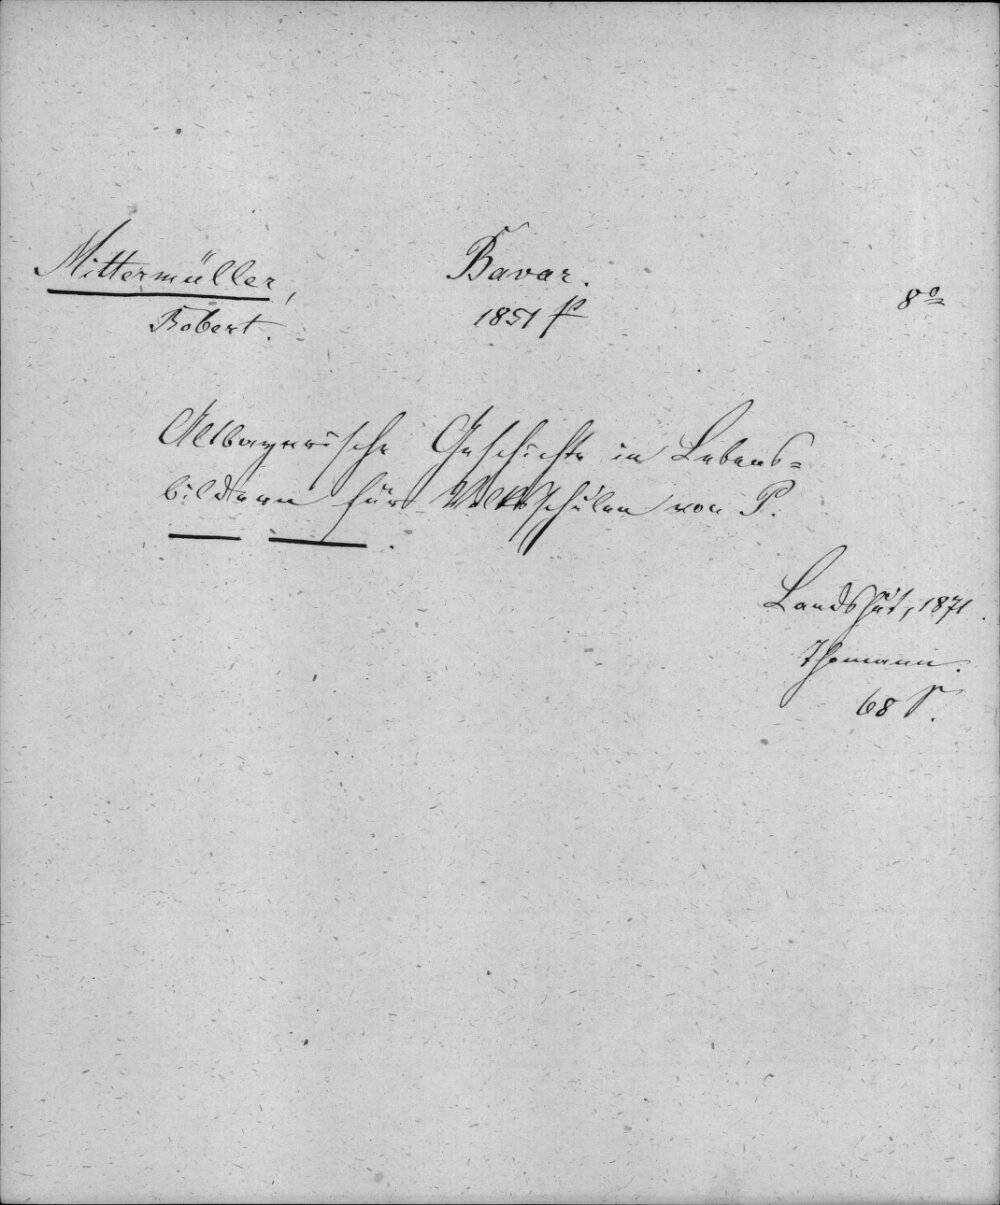 Mittermüller,
Robert.
Bavar.
1851 p
8°
Altbayerische Geschichte in Lebens=
bildern für Volksschulen von P.
— — .
Landshut, 1871.
Thomann.
68 S.